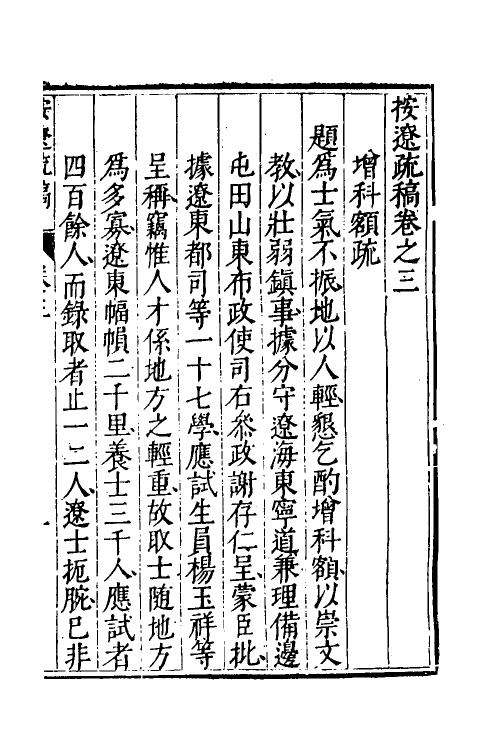 按遼疏稿卷之三
增科額疏
題爲士氣不振地以人輕懇乞酌增科額以崇文
教以壯弱鎮事據分守遼海東寧道兼理備邊
屯田山東布政使司右叅政謝存仁呈蒙臣批
據遼東都司等一十七學應試生員楊玉祥等
呈稱竊惟人才係地方之輕重故取士隨地方
爲多寡遼東幅幀二千里養士三千人應試者
四百餘人而錄取者止一二人遼士扼腕已非
按遼疏稿
卷三
一